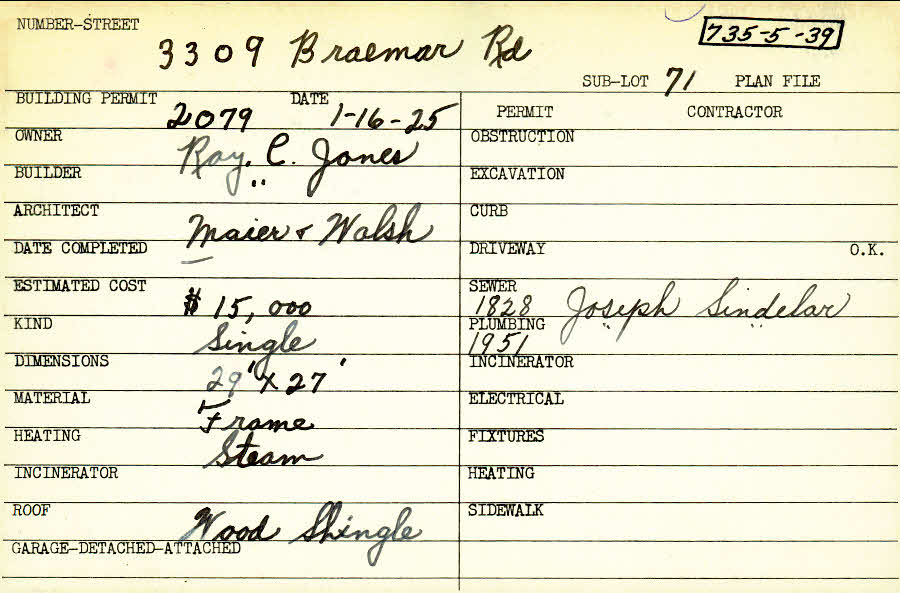 NUMBER-STREET
3309 Braemar Rd
735-5-39
SUB-LOT 71 PLAN FILE
BUILDING PERMIT 2079 DATE 1-16-25
PERMIT CONTRACTOR
OWNER Ray. C. Jones
OBSTRUCTION
BUILDER "
EXCAVATION
ARCHITECT Maier & Walsh
CURB
DATE COMPLETED —
DRIVEWAY O.K.
ESTIMATED COST $15,000
SEWER 1828 Joseph Sindelar
KIND Single
PLUMBING 1951 " "
DIMENSIONS 29' X 27'
INCINERATOR
MATERIAL Frame
ELECTRICAL
HEATING Steam
FIXTURES
INCINERATOR
HEATING
ROOF Wood Shingle
SIDEWALK
GARAGE-DETACHED-ATTACHED